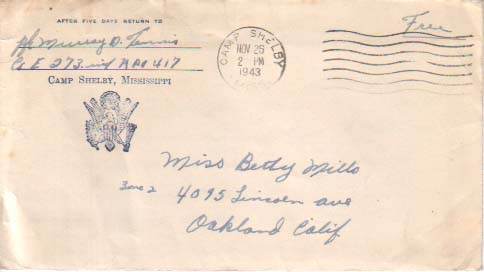 AFTER FIVE DAYS RETURN TO
Free
Murray D.
Co E 273 inf APO 417
CAMP SHELBY, MISSISSIPPI
CAMP SHELBY
NOV 26
2 PM
1943
Miss Betty Mills
Zone 2
4095 Lincoln ave
Oakland Calif